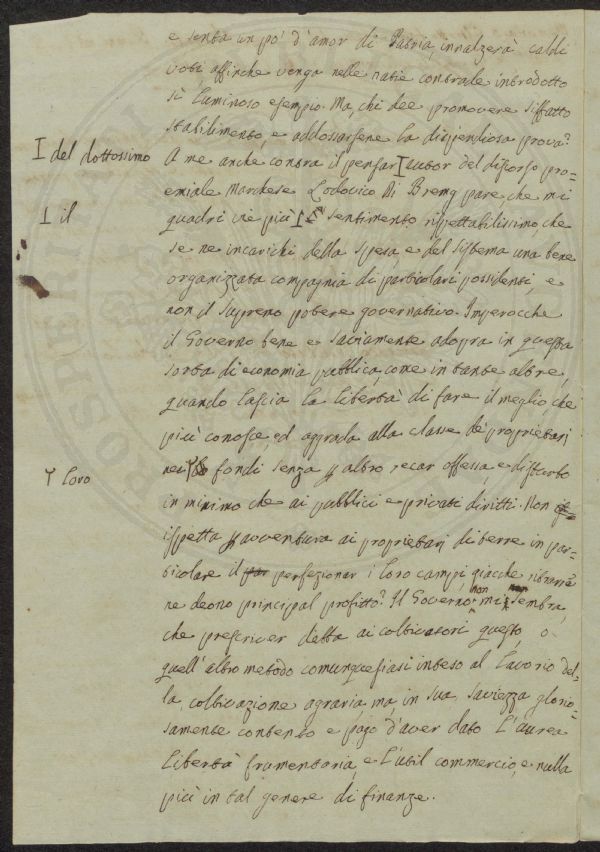 e senta un po' d'amor di Patria, innalzerà caldi
voti affinche venga nelle natie contrade introdotto
sì luminoso esempio. Ma, chi dee promovere siffatto
stabilimento, e addossarsene la dispendiosa prova?
I del dottossimo
A me anche contra il pensar I autor del discorso pro-
emiale Marchese Lodovico Di Breme pare, che mi
I il
quadri vie più I sentimento rispettabilissimo che
se ne incarichi della spesa, e del sistema una bene
organizzata compagnia di particolari possidenti, e
non il supremo potere governativo. Imperocche
il Governo bene e saviamente adopra in questa
sorta di economia pubblica, come in tante altre,
quando lascia la libertà di fare il meglio che
più conosce, ed aggrada alla classe de' proprietarj
Y loro
nei Y fondi senza per altro recar offesa, e disturbo
in minimo che ai pubblici e privati diritti. Non
ispetta per avventura ai proprietarj di terre in par-
ticolare il perfezionar i loro campi, giacche ritrarre
ne deono principal profitto? Il Governo non mi sembra,
che prescriver debba ai coltivatori questo, o
quell'altro metodo comunquesiasi inteso al lavorio del-
la coltivazione agraria, ma, in sua saviezza glorio-
samente contento e pago d'aver dato l'aurea
libertà frumentaria, e l'util commercio, e nulla
più in tal genere di finanze.